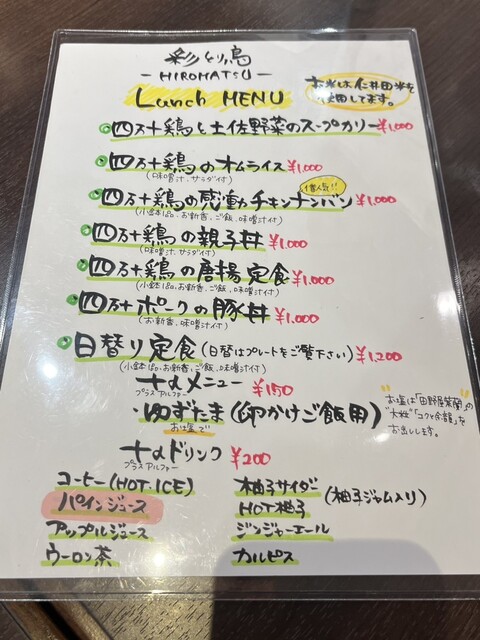 彩とり鳥
-HIROMATSU-
Lunch MENU
お米は仁井田米を
使用してます。
四万十鶏と土佐野菜のスープカリー¥1,000
四万十鶏のオムライス¥1,000
(味噌汁、サラダ付)
1番人気!!
四万十鶏の感動チキンナンバン¥1,000
(小鉢1品、お新香、ご飯、味噌汁付)
四万十鶏の親子丼¥1,000
(味噌汁、サラダ付)
四万十鶏の唐揚定食¥1,000
(小鉢1品、お新香、ご飯、味噌汁付)
四万十ポークの豚丼¥1,000
(お新香、味噌汁付)
日替り定食(日替はプレートをご覧下さい)¥1,200
(小鉢1品、お新香、ご飯、味噌汁付)
+αメニュー ¥150
プラスアルファー
・ゆずたま(卵かけご飯用)
お塩で
お塩は「田野屋紫蘭」の
"大粒"「コクと余韻」を
お出しします。
+αドリンク ¥200
プラスアルファー
コーヒー(HOT・ICE)
パインジュース
アップルジュース
ウーロン茶
柚子サイダー
HOT柚子
(柚子ジャム入り)
ジンジャーエール
カルピス